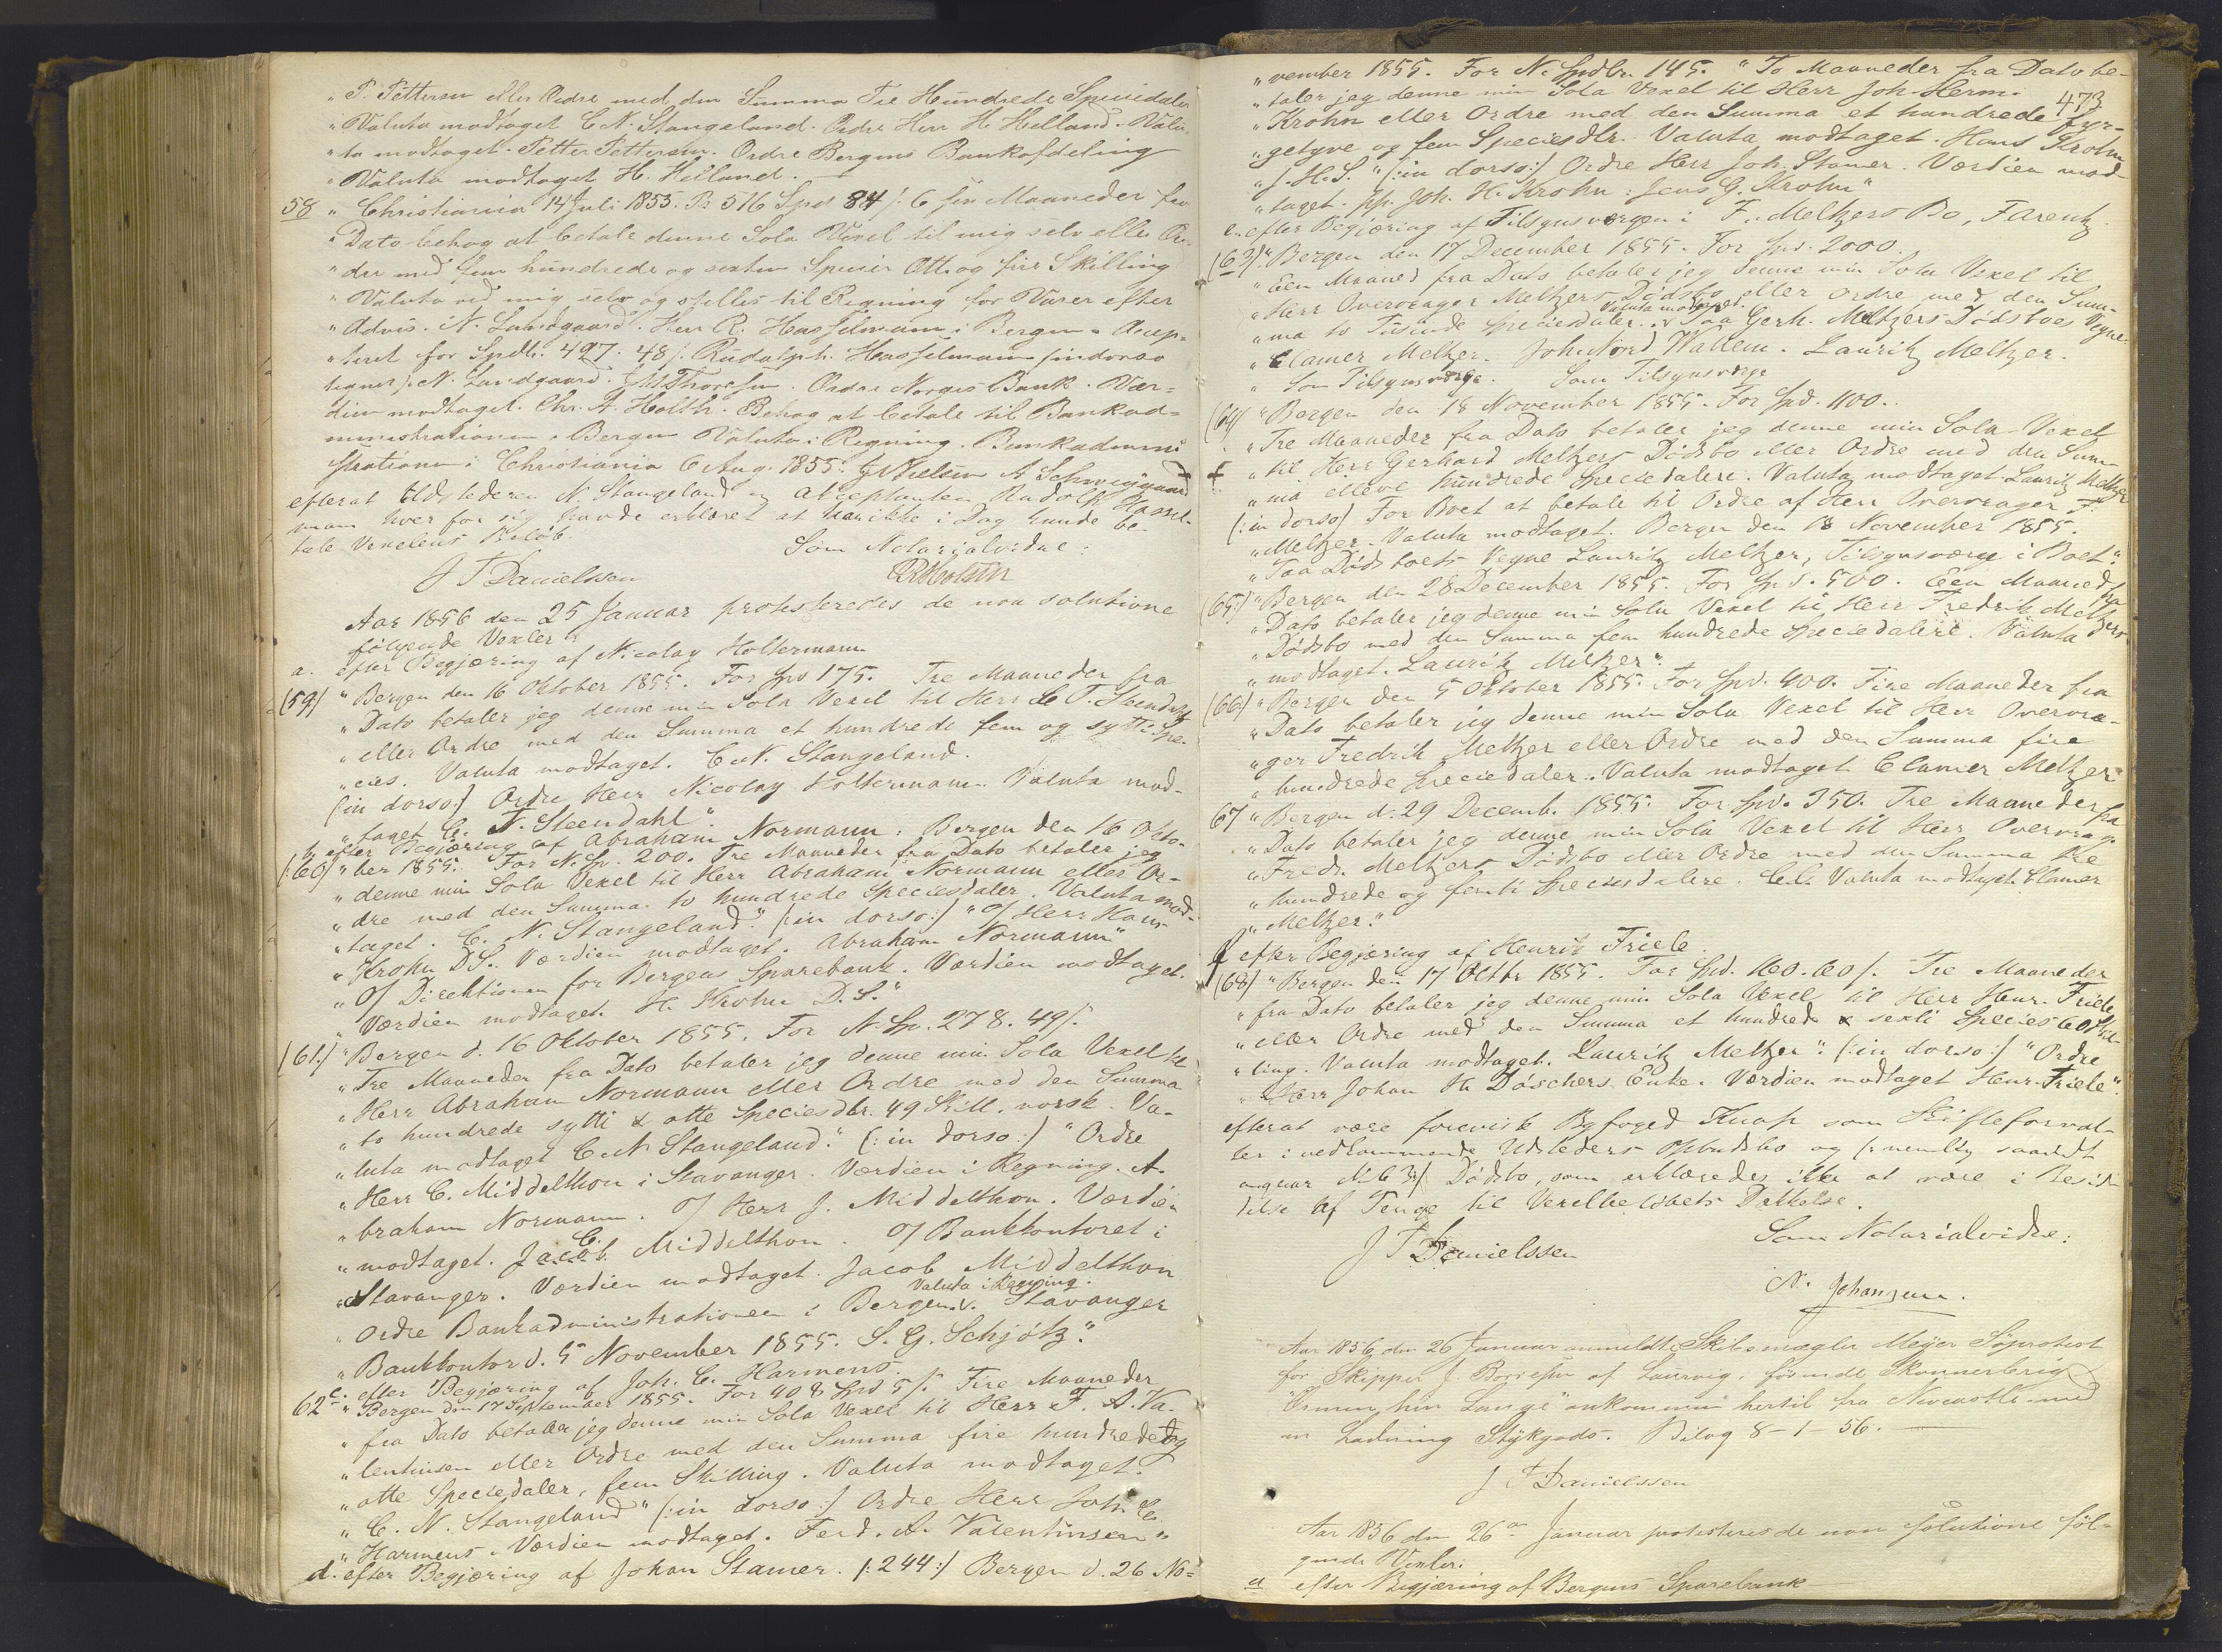 „P. Pettersen eller Ordre med den Summa Tre Hundrede Speciedaler
„Valuta modtaget C N. Stangeland. Ordre Herr H Helland. Valu-
„ta modtaget. Petter Pettersen. Ordre Bergens Bankafdeling
„Valuta modtaget H. Helland.
58 „Christiania 14 Juli 1855. Pr 516 Spd 84 /. 6 sex Maaneder fra
„Dato behag at betale denne Sola Vexel til mig selv eller Or-
„dre med fem hundrede og sexten Species Otte og fire Skilling
„Valuta ved mig selv og stilles til Regning for Varer efter
„Advis. N. Landgaard. Herr R. Hasselmann i Bergen. Accep-
„teret for Spdlr. 427. 48 /. Rudolph Hasselmann /indorso
tegnet/. N. Landgaard. Thoresen. Ordre Norges Bank. Vær-
dien modtaget. Chr. A. Holth. Behag at betale til Bankad-
ministrationen i Bergen Valuta i Regning. Bankadmini
strationen i Christiania 6 Aug. 1855. Nielsen A Schweigaard
efterat Udstederen N. Stangeland og Acceptanten Rudolf Hassel-
mann hver for sig havde erklæret at han ikke i Dag kunde be-
tale Vexelens Beløb.
Som Notarialvidne:
J F Danielssen
Holstn
Aar 1856 den 25 Januar protesteredes de non solutione
følgende Vexler
a. efter Begjæring af Nicolay Holtermann
(59) „Bergen den 16 Oktober 1855. For Spd 175. Tre Maaneder fra
„Dato betaler jeg denne min Sola Vexel til Herr C T. Steendahl
„eller Ordre med den Summa et hundrede fem og sytti Spe-
„cies. Valuta modtaget. C N. Stangeland.
(in dorso:/ Ordre Herr Nicolay Holtermann. Valuta mod-
„taget C. T. Steendahl“
b. efter Begjæring af Abraham Normann. Bergen den 16 Okto-
(:60) „ber 1855. For N. Sp. 200. Tre Maaneder fra Dato betaler jeg
„denne min Sola Vexel til Herr Abraham Normann eller Or-
„dre med den Summa to hundrede Speciesdaler. Valuta mod-
„taget. C. N. Stangeland.“ (:in dorso:/ „O/ Herr Hans
„Krohn D.S. Værdien modtaget. Abraham Normann“
„O/ Direktionen for Bergens Sparebank. Værdien modtaget.
„Værdien modtaget. H. Krohn D. S.“
(61:) „Bergen d. 16 Oktober 1855. For N. Sp. 278. 49/.
„Tre Maaneder fra Dato betaler jeg denne min Sola Vexel til
„Herr Abraham Normann eller Ordre med den Summa
„to hundrede sytti & otte Speciesdlr. 49 Skill. norsk. Va-
„luta modtaget C N Stangeland.“ (:in dorso:/ „Ordre
„Herr C. Middelthon i Stavanger. Værdien i Regning. A-
„braham Normann. O/ Herr J. Middelthon. Værdien
„modtaget. Jacob C. Middelthon. O/ Bankkontoret i
„Stavanger. Værdien modtaget. Jacob Middelthon
„Ordre Bankadministrationen i Bergen. v. Valuta i Regning. Stavanger
„Bankkontor d. 5 November 1855. S. G. Schjøtz.“
c. efter Begjæring af Joh. C. Harmens.
62 „Bergen den 17 September 1855. For 408 Spd 5 /. Fire Maaneder
„fra Dato betaler jeg denne min Sola Vexel til Herr F. A. Va-
„lentinsen eller Ordre med den Summa fire hundrede og
„otte Speciedaler, fem Skilling. Valuta modtaget.
„C. N. Stangeland“ (:in dorso:/ Ordre Herr Joh. C.
„Harmens. Værdien modtaget. Ferd. A. Valentinsen“
d. efter Begjæring af Johan Stamer. /:244:/ Bergen d. 26 No=
473
„vember 1855. For N. Spdlr. 145. „To Maaneder fra Dato be-
„taler jeg denne min Sola Vexel til Herr Joh. Herm.
„Krohn eller Ordre med den Summa et hundrede fyr-
„getyve og fem Speciesdlr. Valuta modtaget. Hans Krohn
„J. H. S. “ (:in dorso:/ Ordre Herr Joh. Stamer. Værdien mod
„taget. pp. Joh. H. Krohn: Jens G. Krohn“
e. efter Begjæring af Tilsynsværgen i F. Meltzers Bo, F Arentz.
(63) „Bergen den 17 December 1855. For Spd. 2000.
„Een Maaned fra Dato betaler jeg denne min Sola Vexel til
„Herr Overvrager Meltzers Dødsbo eller Ordre med den Sum-
„ma to Tusinde Speciesdaler. v Valuta modtaget. Paa Gerh. Meltzers Dødsboes Vegne.
„Clamer Meltzer. Joh Nord Wallem. Lauritz Meltzer.
„Som Tilsynsværge. Som Tilsynsværge
(64) „Bergen den 18 November 1855. For Spd. 1100.
„Tre Maaneder fra Dato betaler jeg denne min Sola-Vexel
„til Herr Gerhard Meltzers Dødsbo eller Ordre med den Sum-
„ma elleve hundrede Speciedalere. Valuta modtaget. Lauritz Meltzer
(:in dorso/ For Boet at betale til Ordre af Herr Overvrager F.
„Meltzer. Valuta modtaget. Bergen den 18 November 1855.
„Paa Dødsboets Vegne Lauritz Meltzer, Tilsynsværge i Boet“.
(65:) „Bergen den 28 December 1855. For Spd. 500. Een Maaned fra
„Dato betaler jeg denne min Sola Vexel til Herr Fredrik Meltzers
„Dødsbo med den Summa fem hundrede Speciedalere. Valuta
„modtaget. Lauritz Meltzer“.
(66) „Bergen den 5 Oktober 1855. For Spd. 400. Fire Maaneder fra
„Dato betaler jeg denne min Sola Vexel til Herr Overvra-
„ger Fredrik Meltzer eller Ordre med den Summa fire
„hundrede Speciedaler. Valuta modtaget Clamer Meltzer“
67 „Bergen d. 29 Decemb. 1855. For Spd. 350. Tre Maaneder fra
„Dato betaler jeg denne min Sola Vexel til Herr Overvrag.
„Fredr. Meltzers Dødsbo eller Ordre med den Summa tre
„hundrede og femti Speciesdalere. Valuta modtaget. Clamer
„Meltzer.“
f efter Begjæring af Henrik Friele.
(68) „Bergen den 17 Oktbr 1855. For Spd. 160.60 /. Tre Maaneder
„fra Dato betaler jeg denne min Sola Vexel til Herr Henr. Friele
„eller Ordre med den Summa et hundrede & sexti Species 60 Skil-
„ling. Valuta modtaget. Lauritz Meltzer“. (:in dorso:/ „Ordre
„Herr Johan H. Døschers Enke. Værdien modtaget Henr. Friele“.
efterat være forevist Byfoged Knap som Skifteforval-
ter i vedkommende Udsteders Opbudsbo og (:nemlig saavidt
angaar N. 63/ Dødsbo, som erklæredes ikke at være i Besid-
delse af Penge til Vexelbeløbets Dækkelse.
J F Danielssen
Som Notarialvidne:
N. Johansen.
Aar 1856 den 26 Januar anmeldte Skibsmægler Meyer Søprotest
for Skipper J. Borresen af Laurvig, førende Skonnertbrig
„Ormen hin Lange“ ankommen hertil fra Newcastle med
en Ladning Stykgods. Bilag 8-1-56.
J F Danielssen
Aar 1856 den 26 Januar protesteredes de non solutione føl-
gende Vexler:
a efter Begjæring af Bergens Sparebank